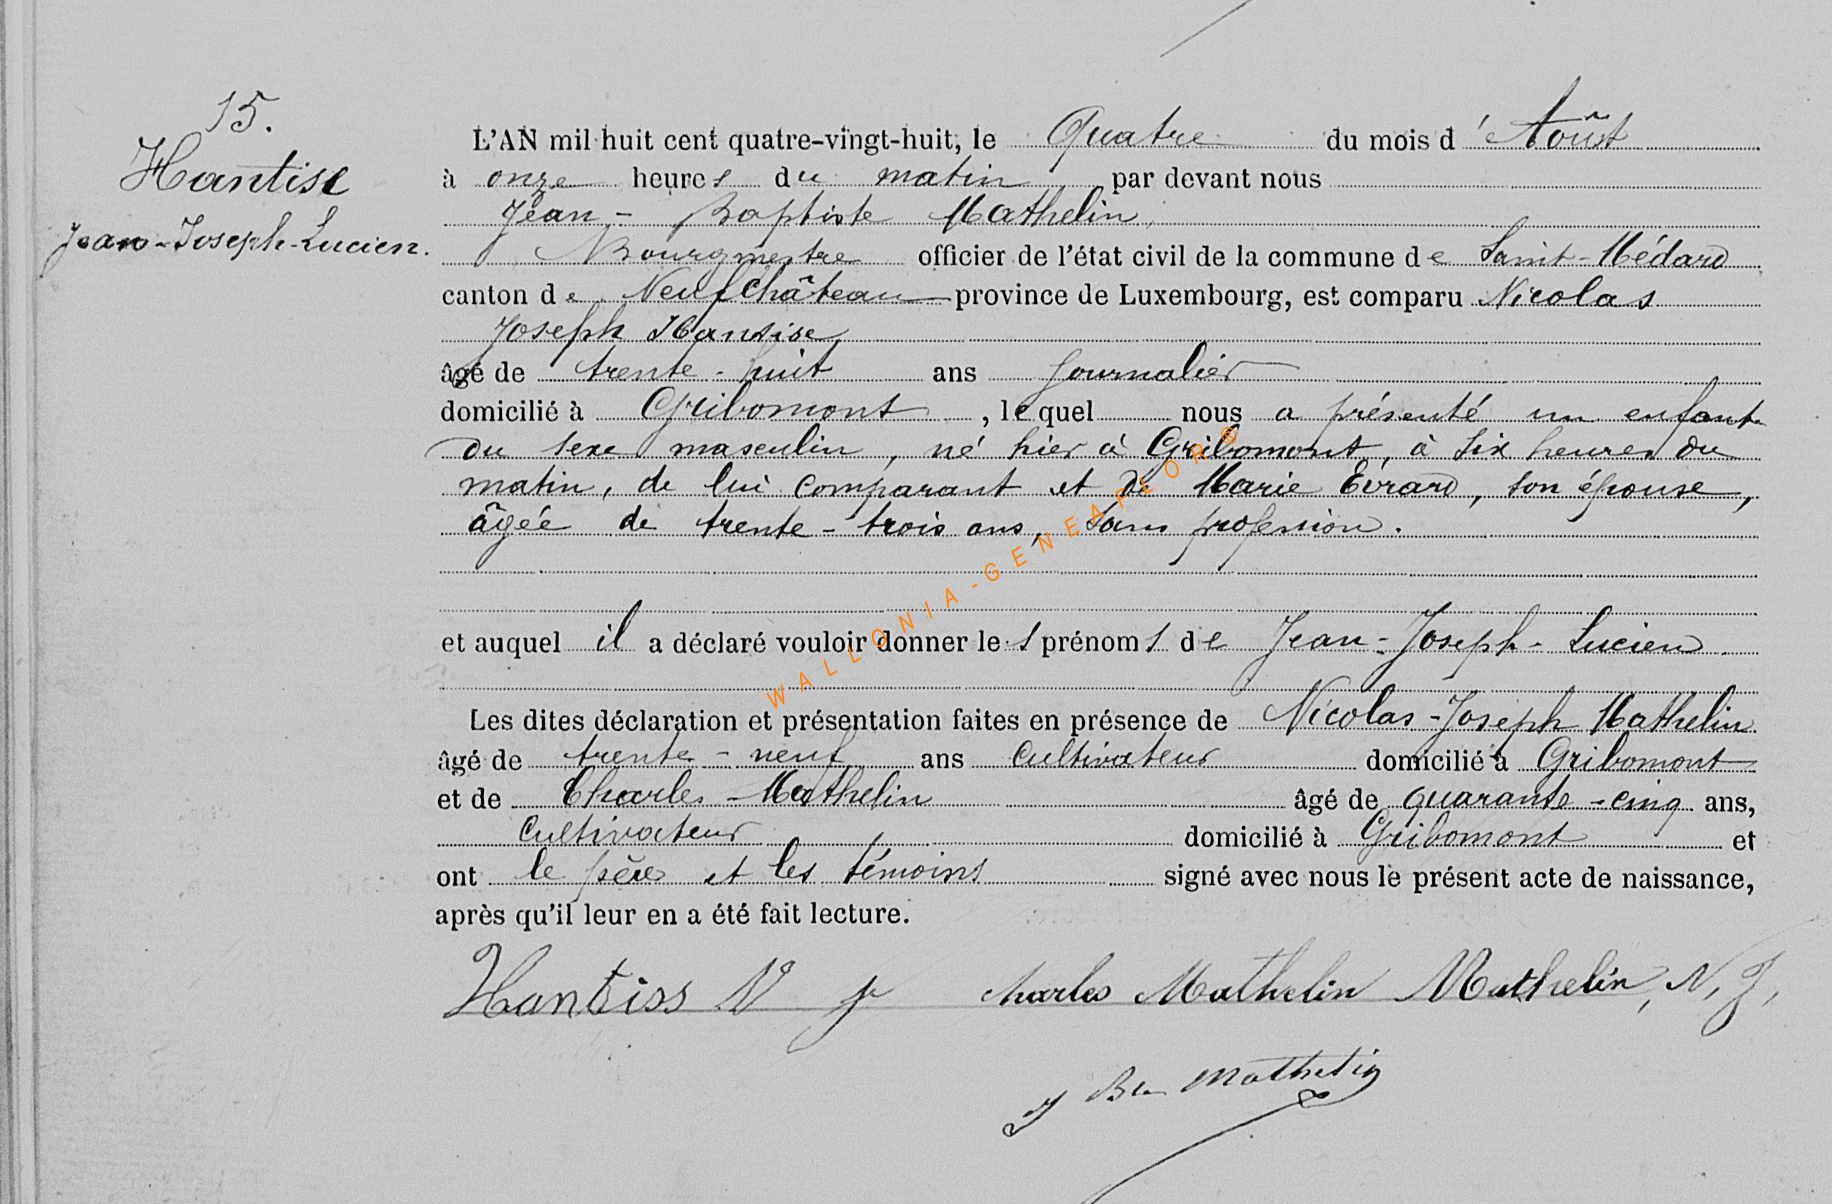 15.
Hantise
Jean-Joseph-Lucien.
L'AN mil huit cent quatre-vingt-huit, le Quatre du mois d'Août
à onze heures du matin par devant nous
Jean-Baptiste Mathelin,
Bourgmestre officier de l'état civil de la commune de Saint-Médard
canton de Neufchâteau province de Luxembourg, est comparu Nicolas
Joseph Hantise,
âgé de trente-huit ans journalier
domicilié à Gribomont, lequel nous a présenté un enfant
du sexe masculin, né hier à Gribomont, à six heures du
matin, de lui comparant et de Marie Evrard, son épouse,
âgée de trente-trois ans, sans profession.
et auquel il a déclaré vouloir donner les prénoms de Jean-Joseph-Lucien.
Les dites déclaration et présentation faites en présence de Nicolas-Joseph Mathelin
âgé de trente-neuf ans cultivateur domicilié à Gribomont
et de Charles Mathelin âgé de quarante-cinq ans,
cultivateur domicilié à Gribomont et
ont le père et les témoins signé avec nous le présent acte de naissance,
après qu'il leur en a été fait lecture.
Hantiss N J Charles Mathelin Mathelin, N, J,
J Bte Mathelin
WALLONIA-GENEAFLOR®